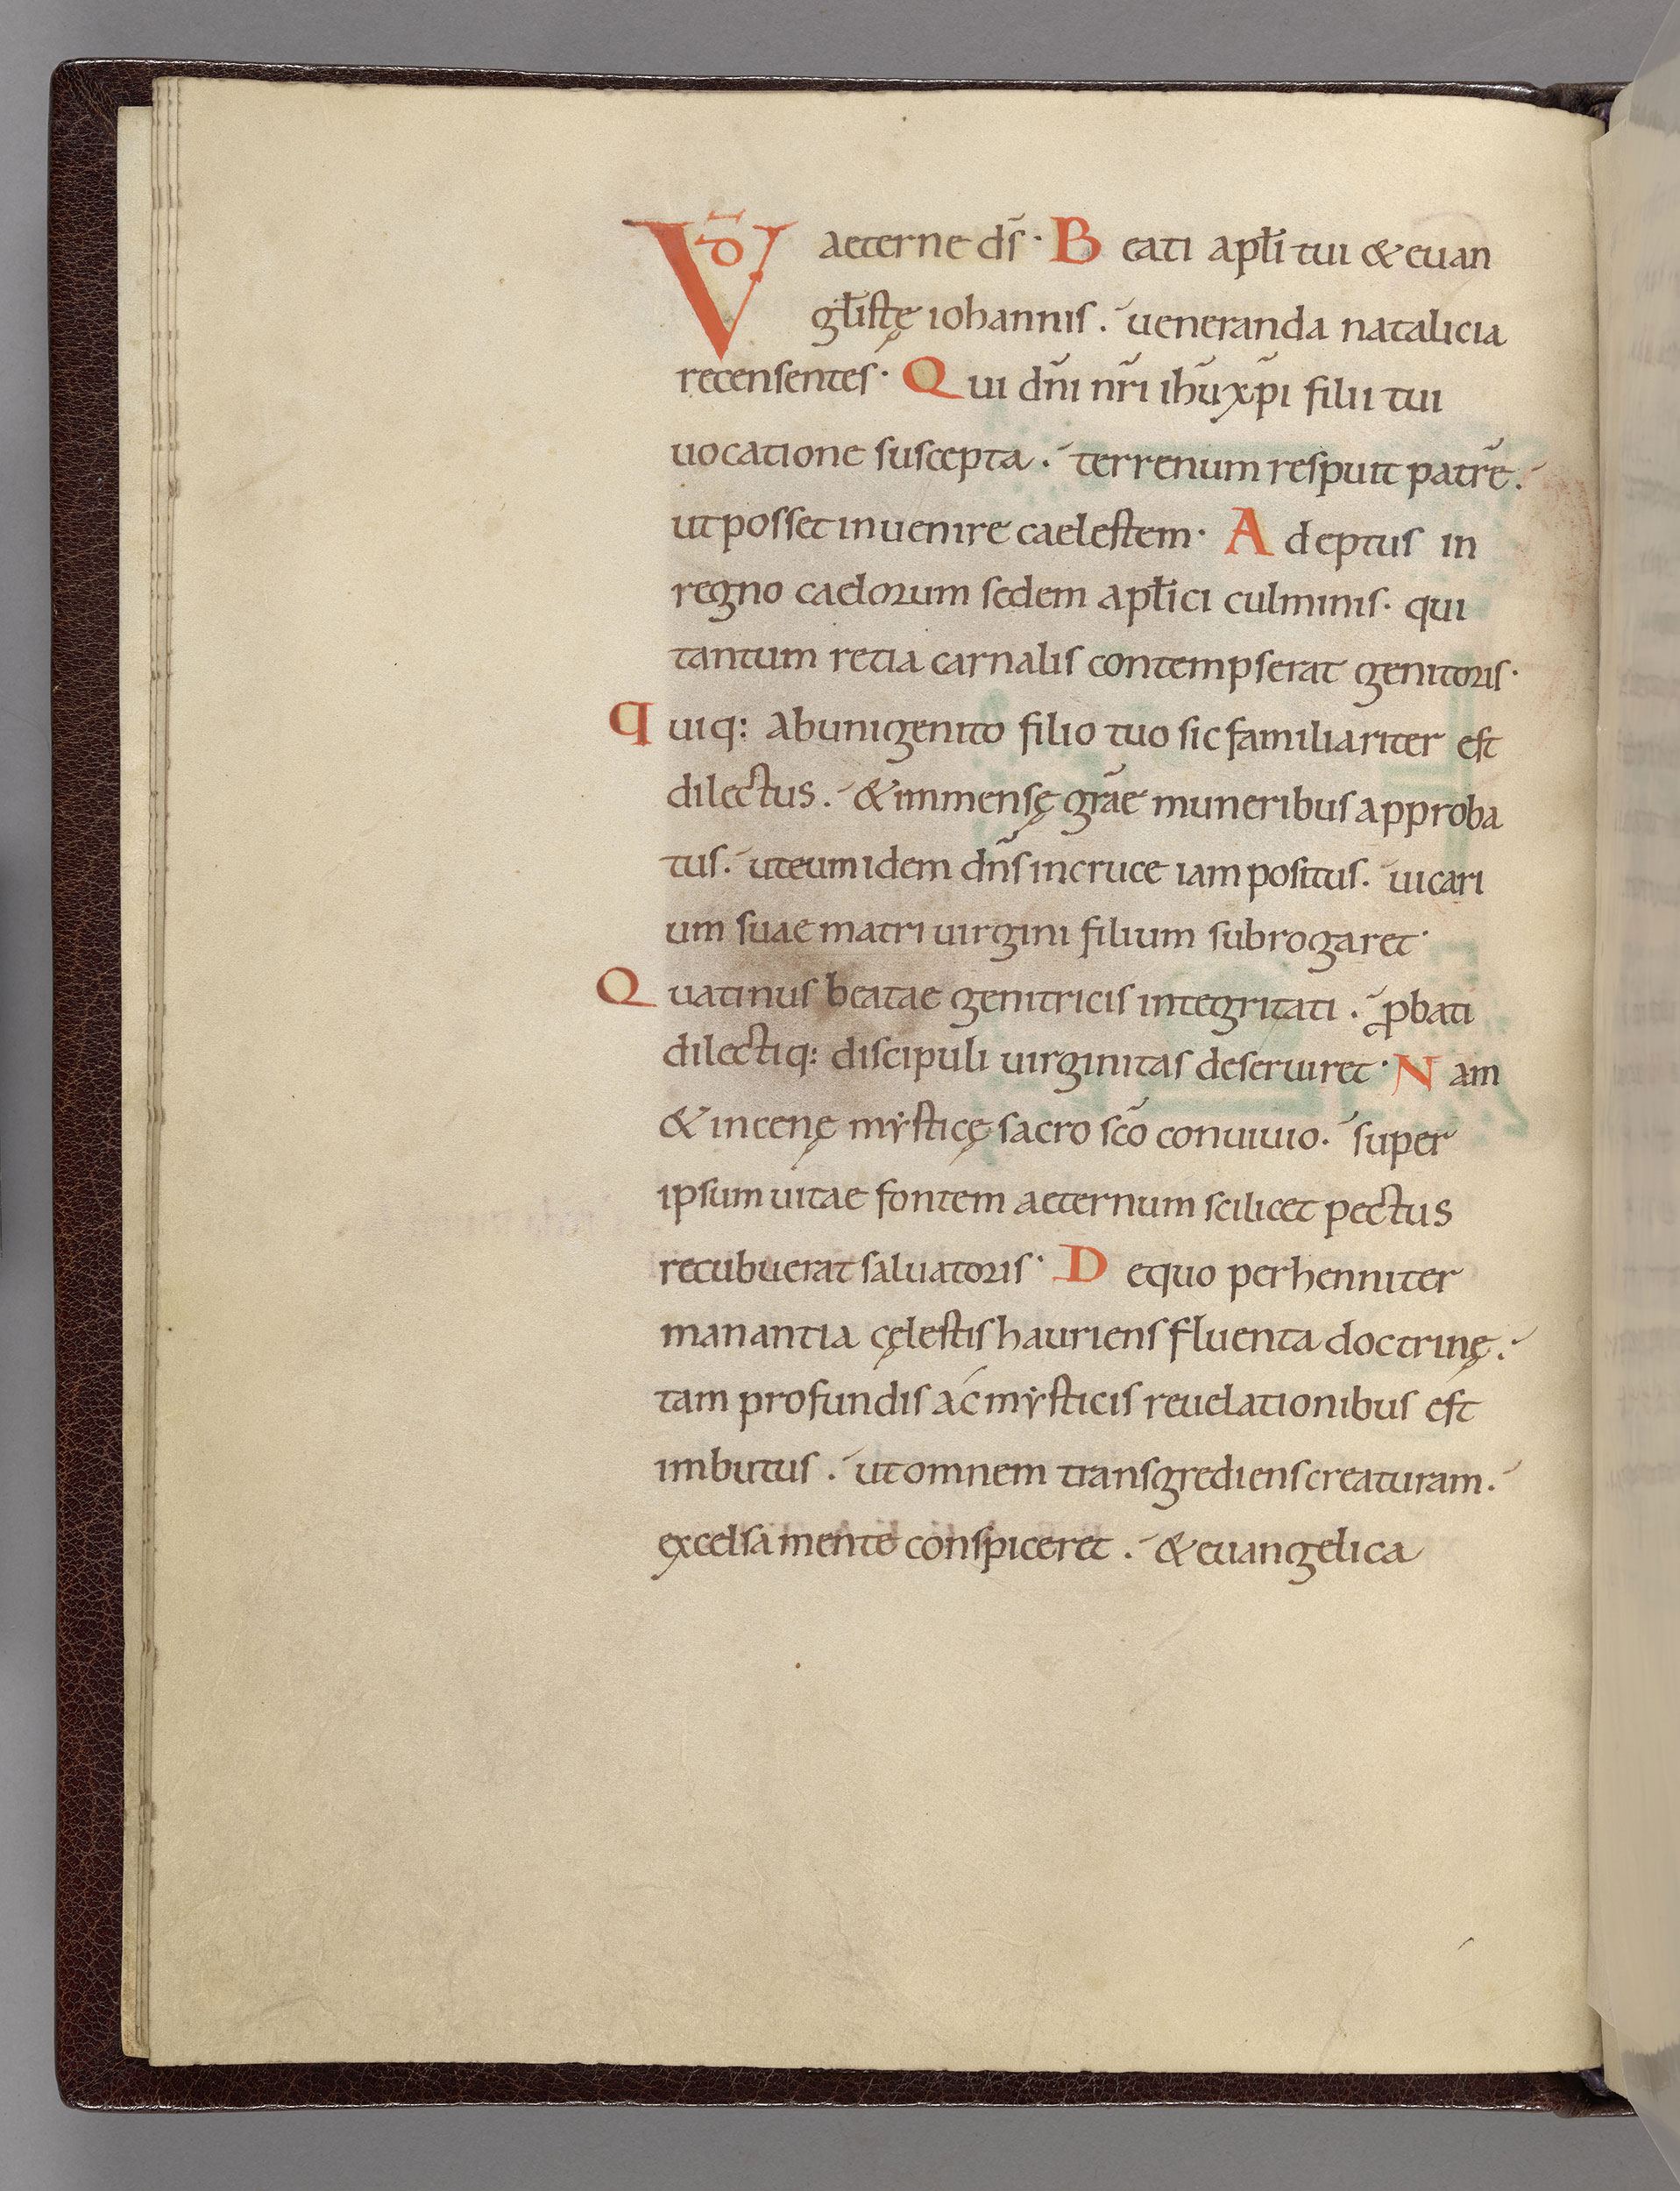 VD̄ aeterne ds̄· Beati apl̄i tui & euan
gl̄istę iohannis. ueneranda natalicia
recensentes· Qui dn̄i nr̄i ihū xp̄i filii tui
uocatione suscepta. terrenum respuit patrē.
ut posset inuenire caelestem· Adeptus in
regno caelorum sedem apl̄ici culminis· qui
tantum retia carnalis contempserat genitoris·
Quiq: ab unigenito filio tuo sic familiariter est
dilectus. & immensę grāe muneribus approba
tus. ut eum idem dn̄s in cruce iam positus. uicari
um suae matri uirgini filium subrogaret·
Quatinus beatae genitricis integritati. ꝓbati
dilectiq: discipuli uirginitas deseruiret· Nam
& in cenę mẏsticę sacro scō conuiuio. super
ipsum uitae fontem aeternum scilicet pectus
recubuerat saluatoris· De quo perhenniter
manantia cęlestis hauriens fluenta doctrinę.
tam profundis ac mẏsticis reuelationibus est
imbutus. ut omnem transgrediens creaturam.
excelsa mente conspiceret. & euangelica